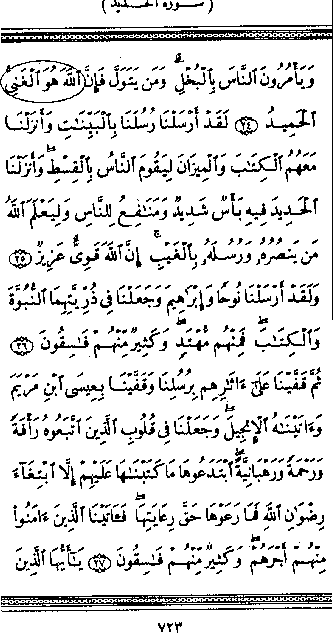 (سورة الحديد)
وَيَأْمُرُونَ النَّاسَ بِالْبُخْلِ وَمَن يَتَوَلَّ فَإِنَّ اللَّهَ هُوَ الْغَنِيُّ
الْحَمِيدُ ﴿٢٤﴾ لَقَدْ أَرْسَلْنَا رُسُلَنَا بِالْبَيِّنَاتِ وَأَنزَلْنَا
مَعَهُمُ الْكِتَابَ وَالْمِيزَانَ لِيَقُومَ النَّاسُ بِالْقِسْطِ وَأَنزَلْنَا
الْحَدِيدَ فِيهِ بَأْسٌ شَدِيدٌ وَمَنَافِعُ لِلنَّاسِ وَلِيَعْلَمَ اللَّهُ
مَن يَنصُرُهُ وَرُسُلَهُ بِالْغَيْبِ إِنَّ اللَّهَ قَوِيٌّ عَزِيزٌ ﴿٢٥﴾
وَلَقَدْ أَرْسَلْنَا نُوحًا وَإِبْرَاهِيمَ وَجَعَلْنَا فِي ذُرِّيَّتِهِمَا النُّبُوَّةَ
وَالْكِتَابَ فَمِنْهُم مُّهْتَدٍ وَكَثِيرٌ مِّنْهُمْ فَاسِقُونَ ﴿٢٦﴾
ثُمَّ قَفَّيْنَا عَلَىٰ ءَاثَارِهِم بِرُسُلِنَا وَقَفَّيْنَا بِعِيسَى ابْنِ مَرْيَمَ
وَءَاتَيْنَاهُ الْإِنجِيلَ وَجَعَلْنَا فِي قُلُوبِ الَّذِينَ اتَّبَعُوهُ رَأْفَةً
وَرَحْمَةً وَرَهْبَانِيَّةً ابْتَدَعُوهَا مَا كَتَبْنَاهَا عَلَيْهِمْ إِلَّا ابْتِغَاءَ
رِضْوَانِ اللَّهِ فَمَا رَعَوْهَا حَقَّ رِعَايَتِهَا فَـَٔاتَيْنَا الَّذِينَ ءَامَنُوا
مِنْهُمْ أَجْرَهُمْ وَكَثِيرٌ مِّنْهُمْ فَاسِقُونَ ﴿٢٧﴾ يَـٰٓأَيُّهَا الَّذِينَ
٧٢٣